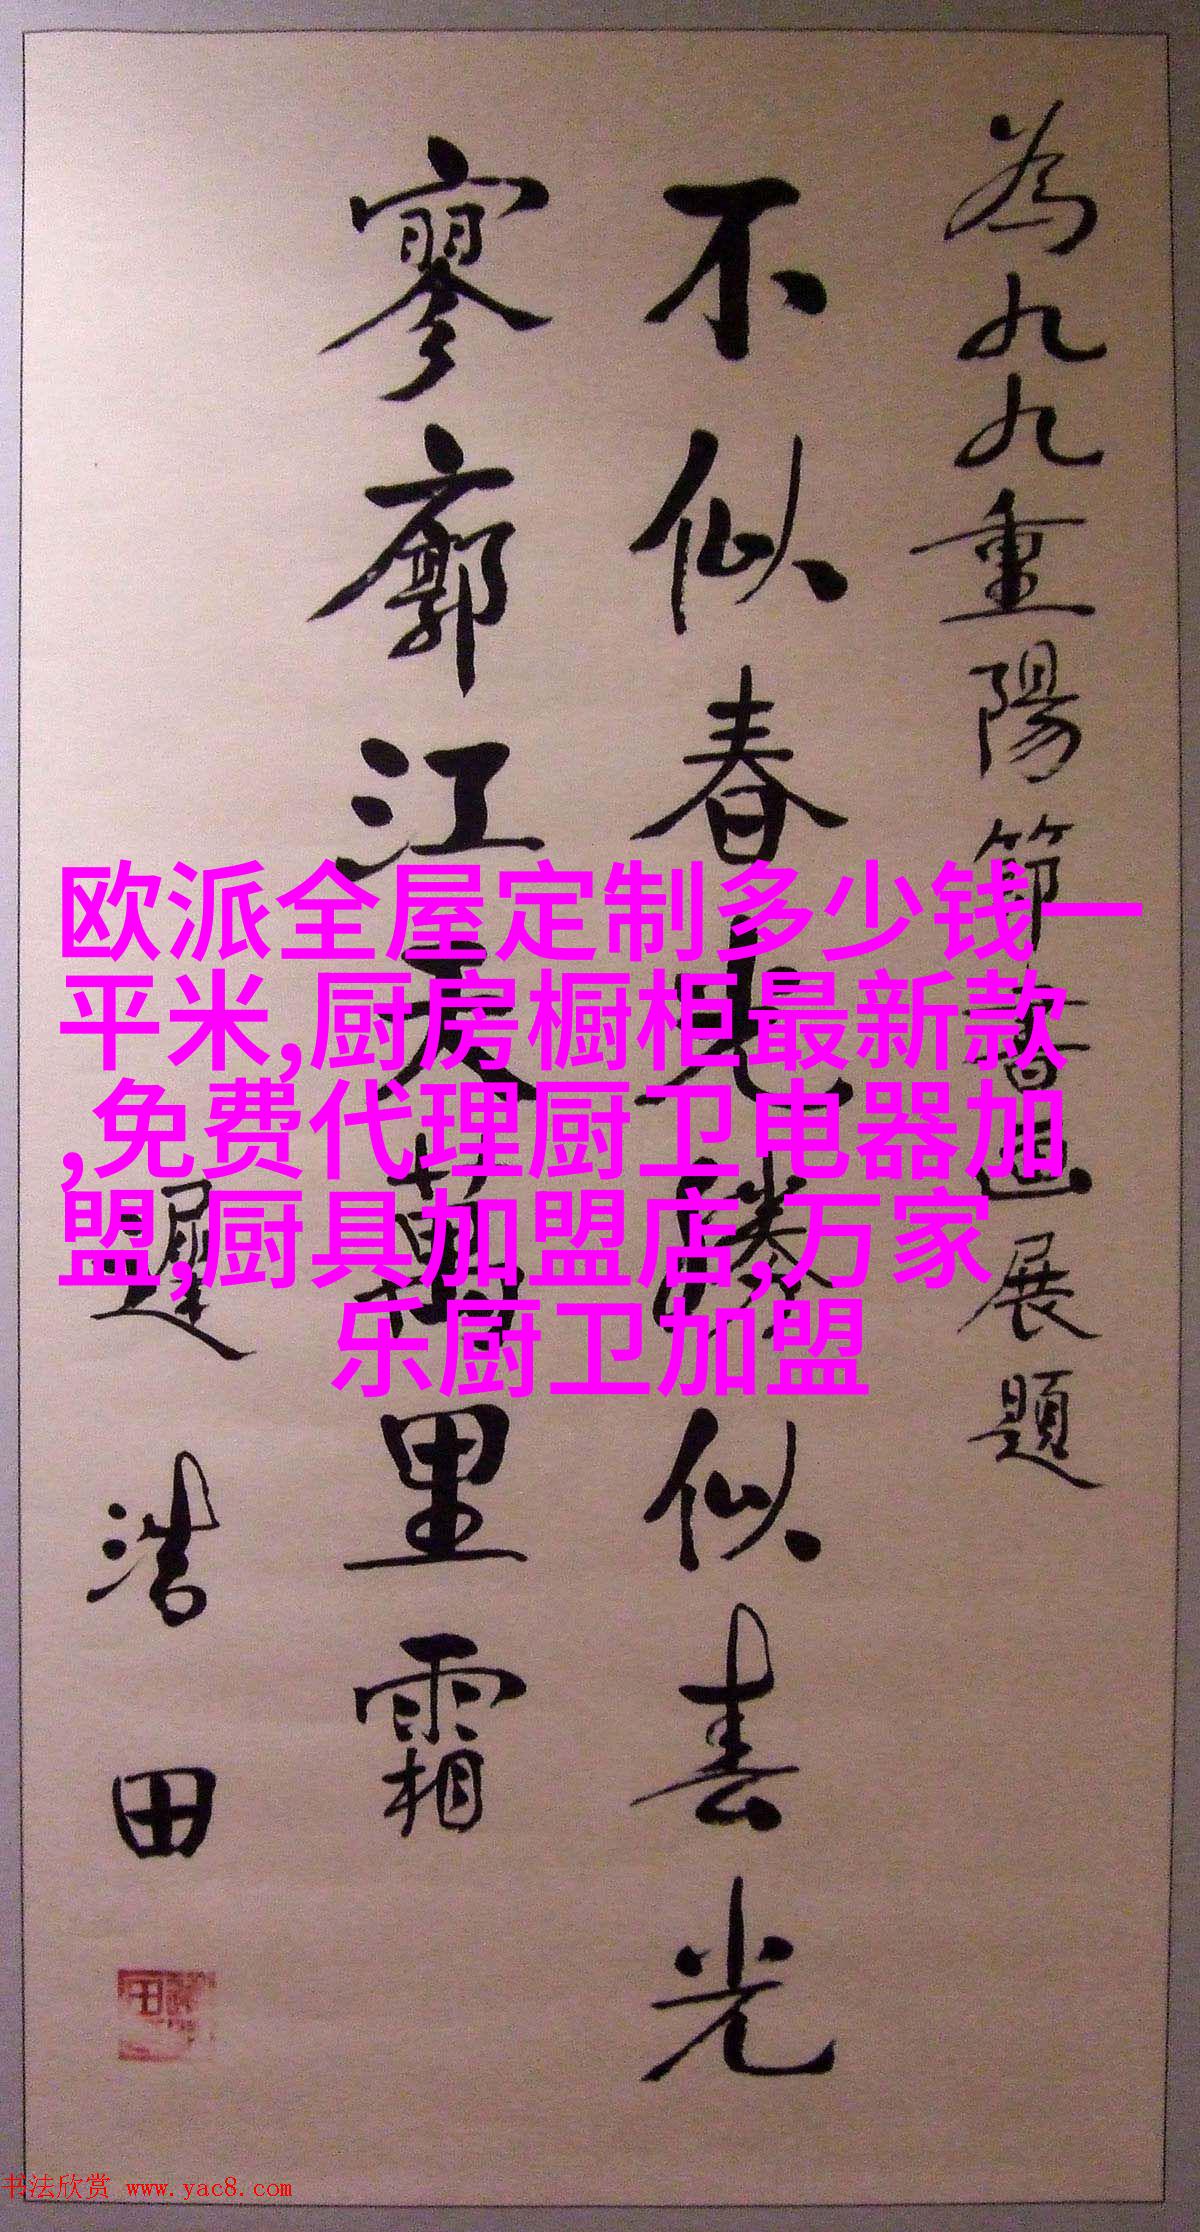 為九九重陽節書畫展題
不似春光勝似春光
寥廓江天萬里霜
遲浩田
欧派全屋定制多少钱一
平米,厨房橱柜最新款
,免费代理厨卫电器加
盟,厨具加盟店,万家
乐厨卫加盟
书法欣赏 www.yac8.com